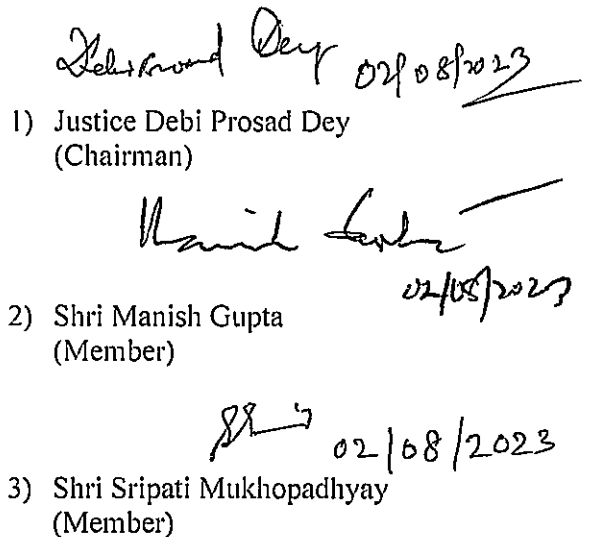 Debi Prosad Dey 02/08/2023
1) Justice Debi Prosad Dey
(Chairman)
Manish Gupta
02/08/2023
2) Shri Manish Gupta
(Member)
02/08/2023
3) Shri Sripati Mukhopadhyay
(Member)